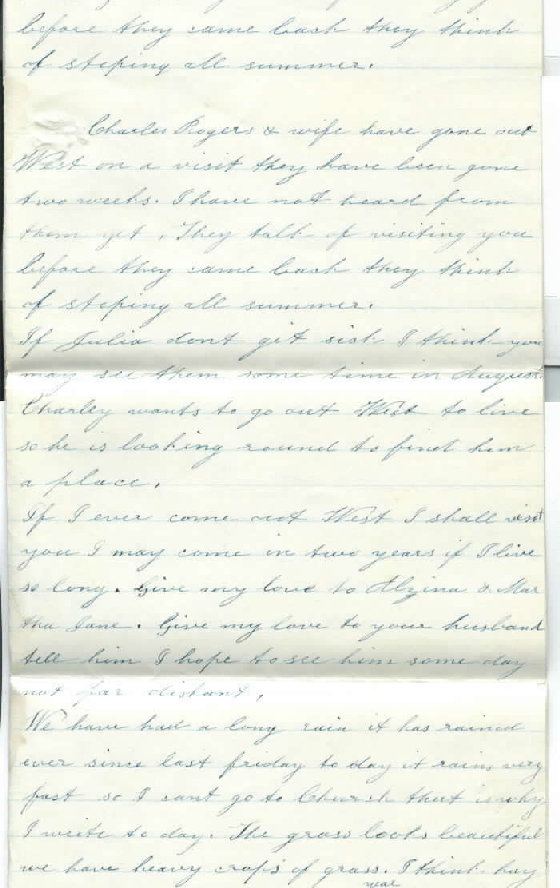 before they came back they think
of stoping all summer.
Charles Rogers & wife have gone out
West on a visit they have been gone
two weeks. I have not heard from
them yet. They talk of visiting you
before they came back they think
of stoping all summer.
If Julia dont get sick I think you
may see them some time in August.
Charley wants to go out West to live
so he is looking round to find him
a place.
If I ever come out West I shall visit
you I may come in two years if I live
so long. Give my love to Alzina & Mar
tha Jane. Give my love to your husband
tell him I hope to see him some day
not far distant.
We have had a long rain it has rained
ever since last friday to day it rains very
fast so I cant go to Church that is why
I write to day. The grass looks beautiful
we have heavy crops of grass. I think hay